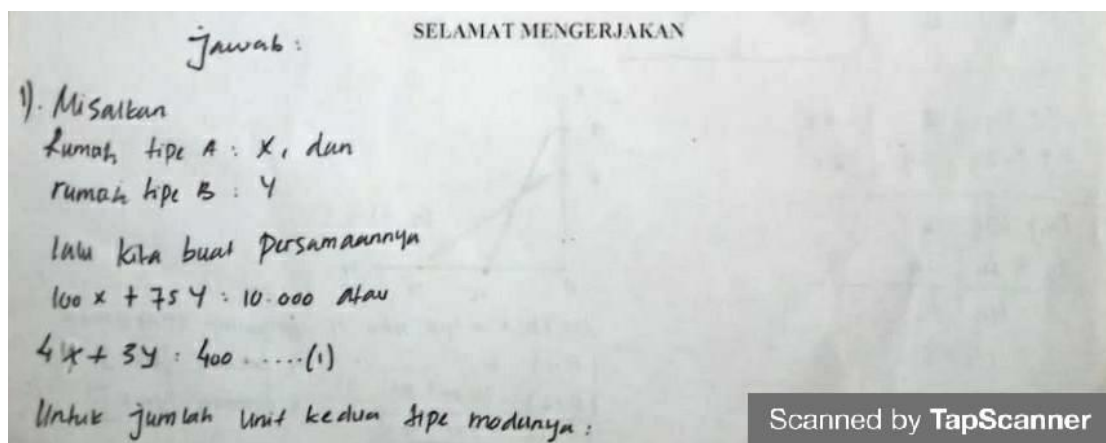 SELAMAT MENGERJAKAN
Jawab :
1). Misalkan
Rumah tipe A : X, dan
rumah tipe B : Y
lalu kita buat Persamaannya
100 x + 75 Y : 10.000 atau
4 x + 3 y : 400 .....(1)
Untuk jumlah unit kedua tipe modelnya :
Scanned by TapScanner